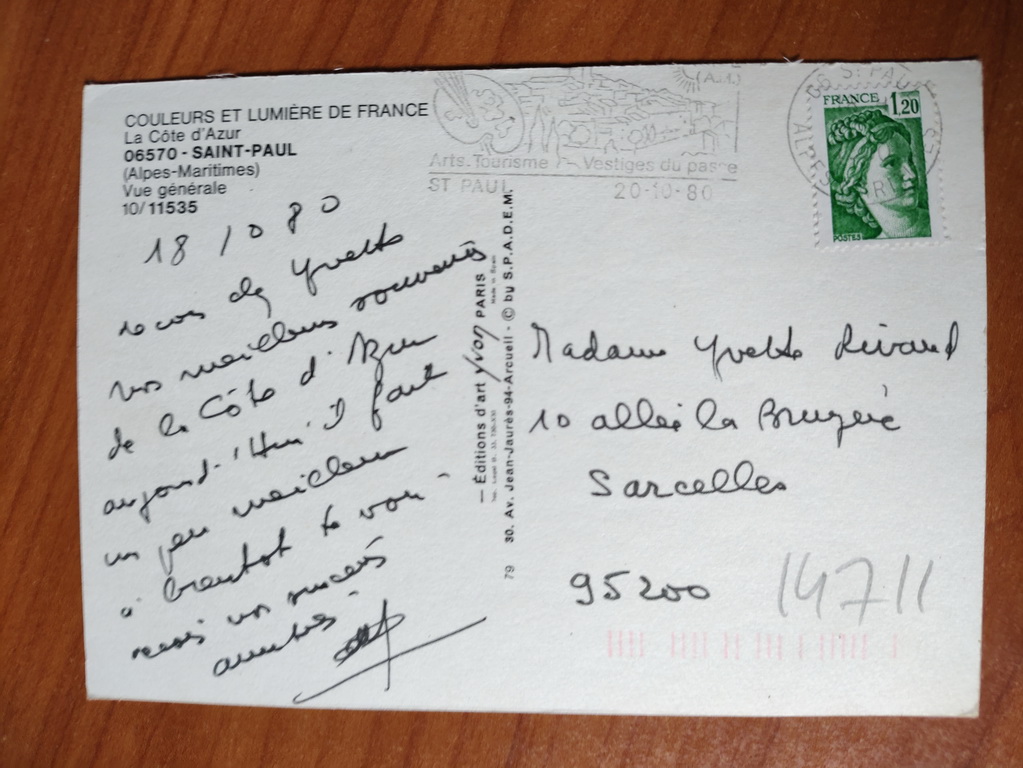 COULEURS ET LUMIÈRE DE FRANCE
La Côte d'Azur
06570 - SAINT-PAUL
(Alpes-Maritimes)
Vue générale
10/11535
18 10 80
Yvette
nos meilleurs souvenirs
de la Côte d'Azur
aujourd'Hui il fait
un peu meilleur
a bientot te voir
recois nos sincères
amitiés
— Éditions d'art yvon PARIS
Made in
79 30. Av. Jean-Jaurès-94-Arcueil - © by S.P.A.D.E.M.
(A.M.)
Arts. Tourisme - Vestiges du passe
ST PAUL 20-10-80
06 ST PAUL
FRANCE 1,20
POSTES
Madame Yvette
10 allée la Bruyère
Sarcelles
95200
14711